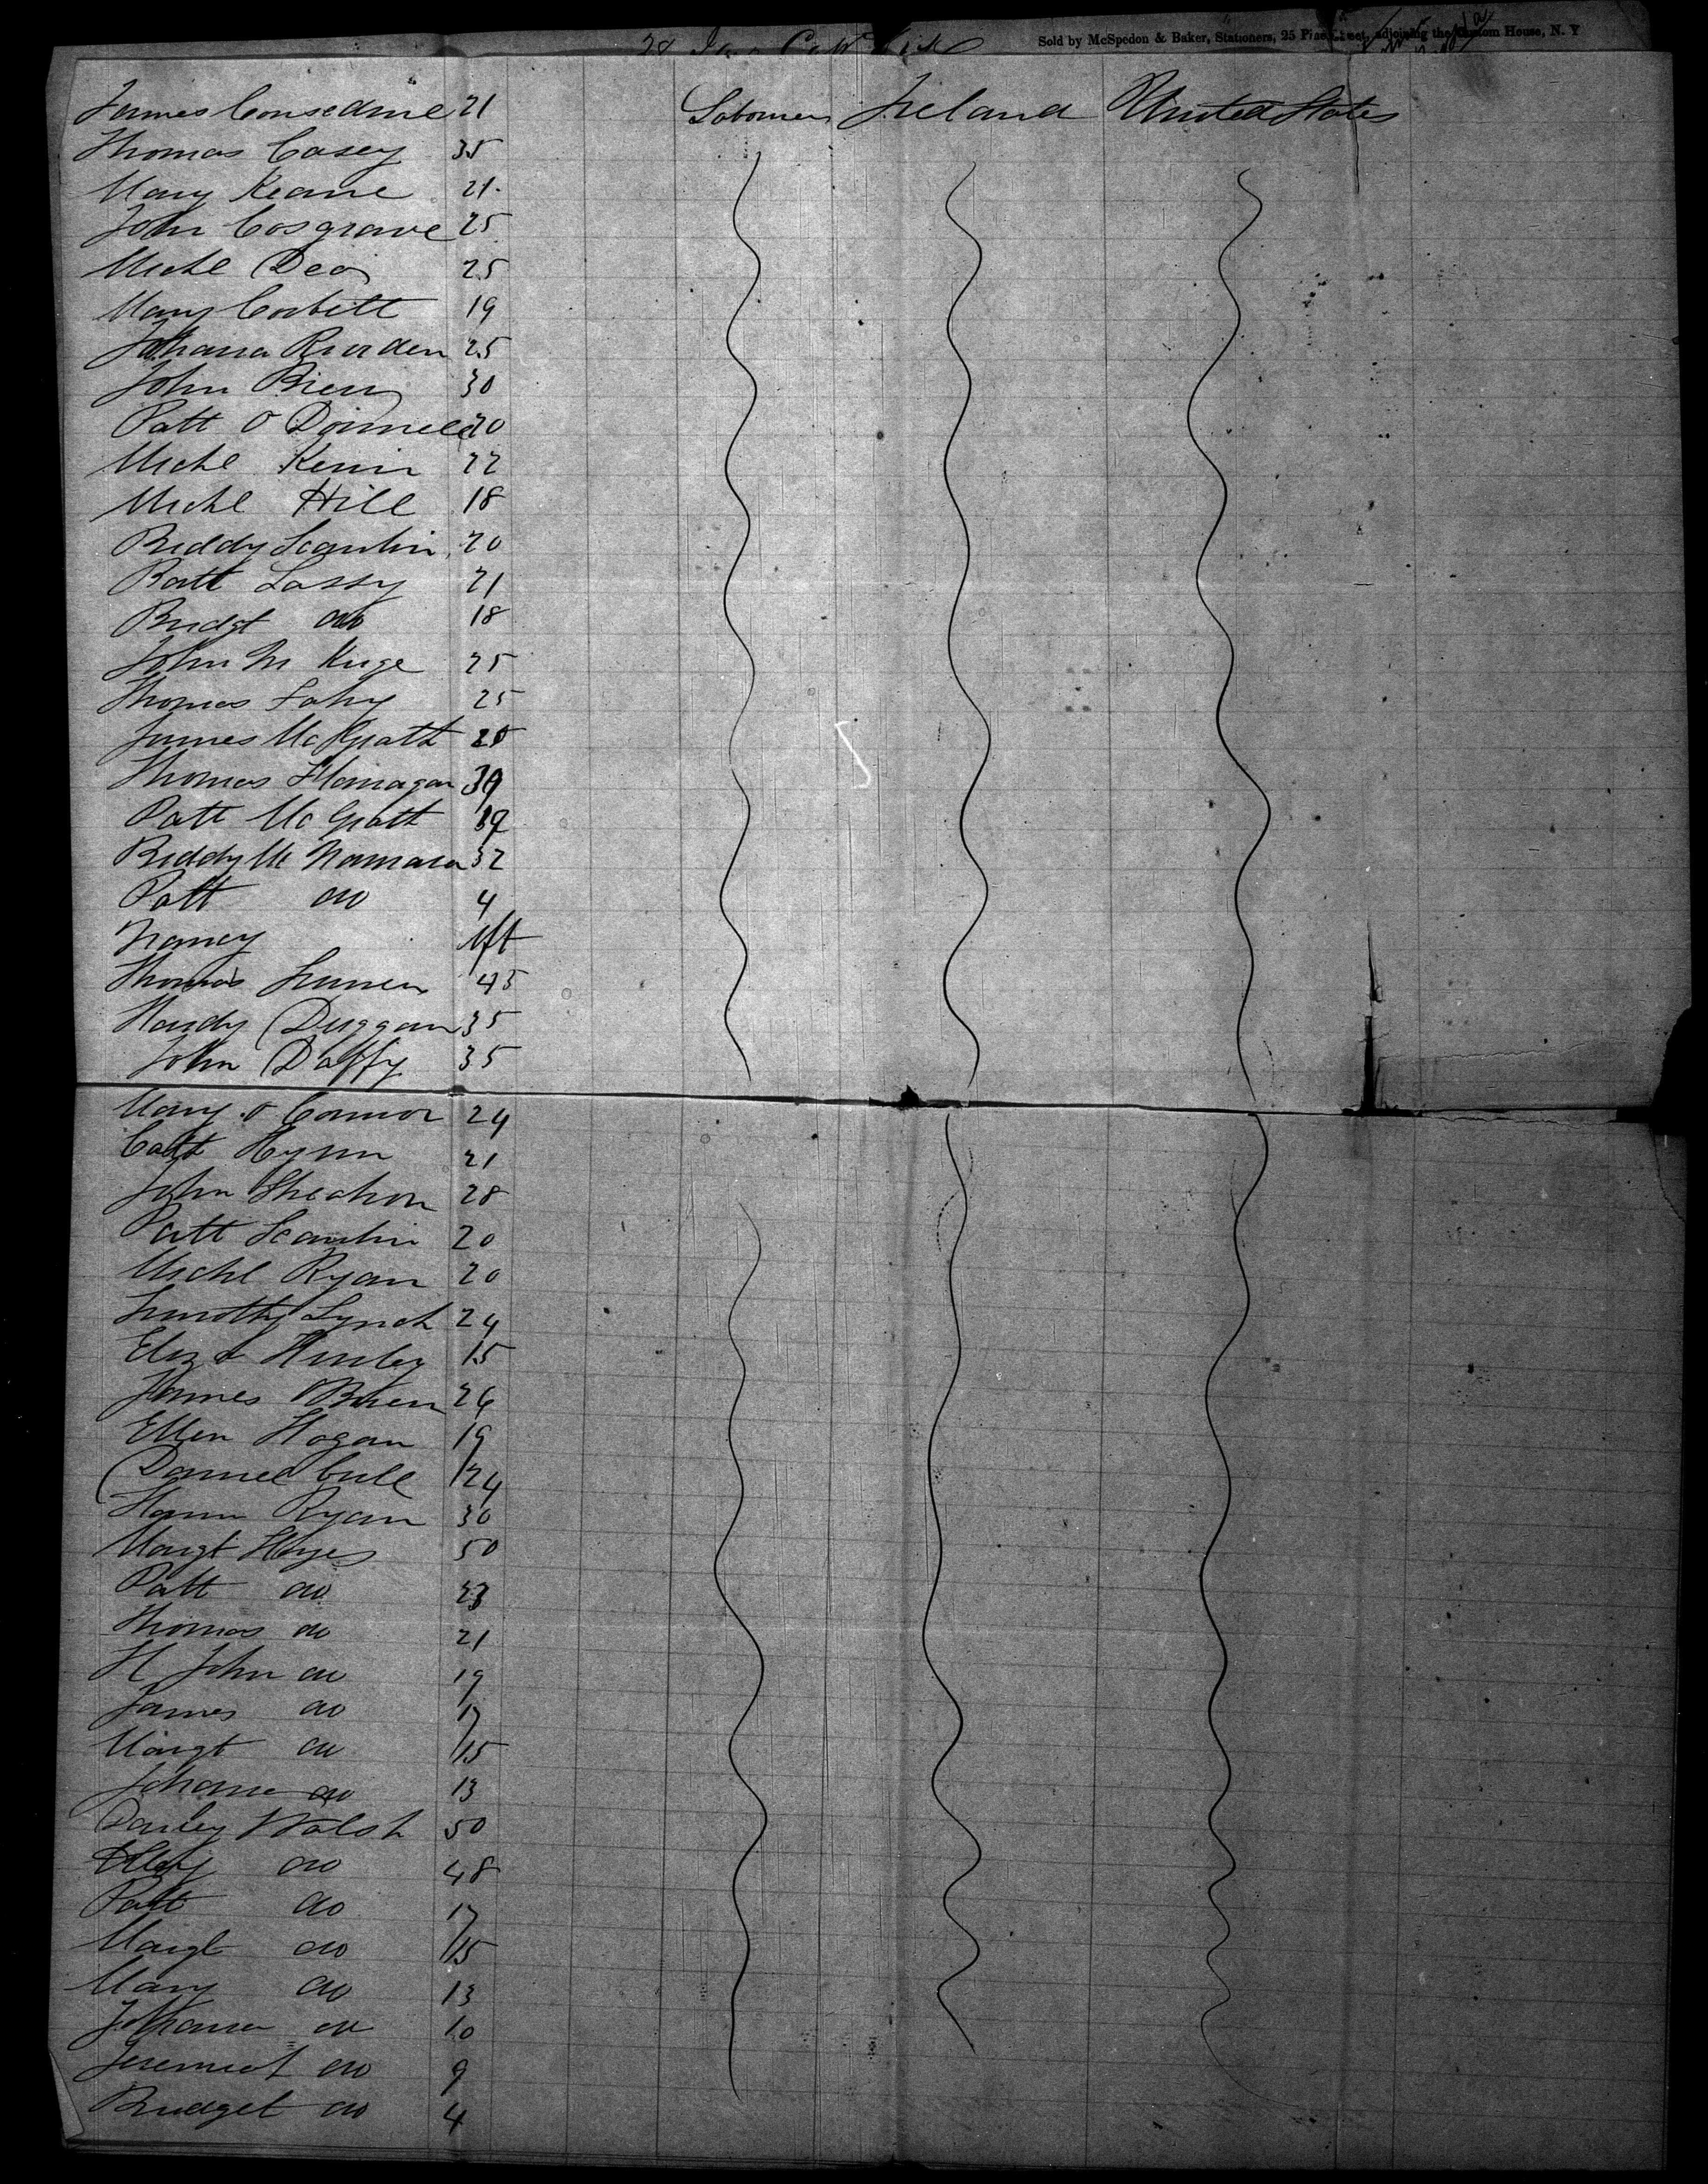 Sold by McSpedon & Baker, Stationers, 25 Pine Street, adjoining the Custom House, N. Y
James Consedine 21 Labourers Ireland United States
Thomas Casey 35
Mary Keane 21
John Cosgrave 25
Michl Dea 25
Mary Corbett 19
Johana Riorden 25
John Brien 30
Patt O Donnell 20
Michl 22
Michl Hill 18
Biddy Scanlin 20
Patt Lassy 21
Bridgt do 18
John 25
Thomas Fahy 25
James McGrath
Thomas Flanagan
Patt McGrath
Biddy Mc Namara 32
Patt do 4
Nancy Inft
Thomas 45
Duggan 35
John Daffy 35
Mary O Connor 24
Cath Hynn 21
John Sheahon 28
Patt Scanlin 20
Michl Ryan 20
Timothy Lynch 24
Eliza Hurley 15
James OBrien 26
Ellen Hogan 19
Daniel 24
Ryan 30
Margt Hayes 50
Patt do 23
Thomas do 21
John do 19
James do 17
Margt do 15
Johana do 13
Darley Walsh 50
do 48
Patt do 17
Margt do 15
Mary do 13
Johana do 10
Jeremiah do 9
Bridget do 4